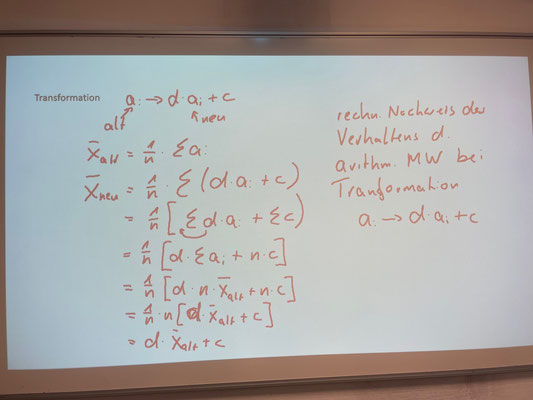 Transformation aᵢ → d·aᵢ + c
alt neu
x̄alt = 1/n · Σaᵢ
x̄neu = 1/n · Σ(d·aᵢ + c)
= 1/n [Σd·aᵢ + Σc)
= 1/n [d·Σaᵢ + n·c]
= 1/n [d·n·x̄alt + n·c]
= 1/n · n[d·x̄alt + c]
= d·x̄alt + c
rechn. Nachweis des
Verhaltens d.
arithm. MW bei
Tranformation
aᵢ → d·aᵢ + c